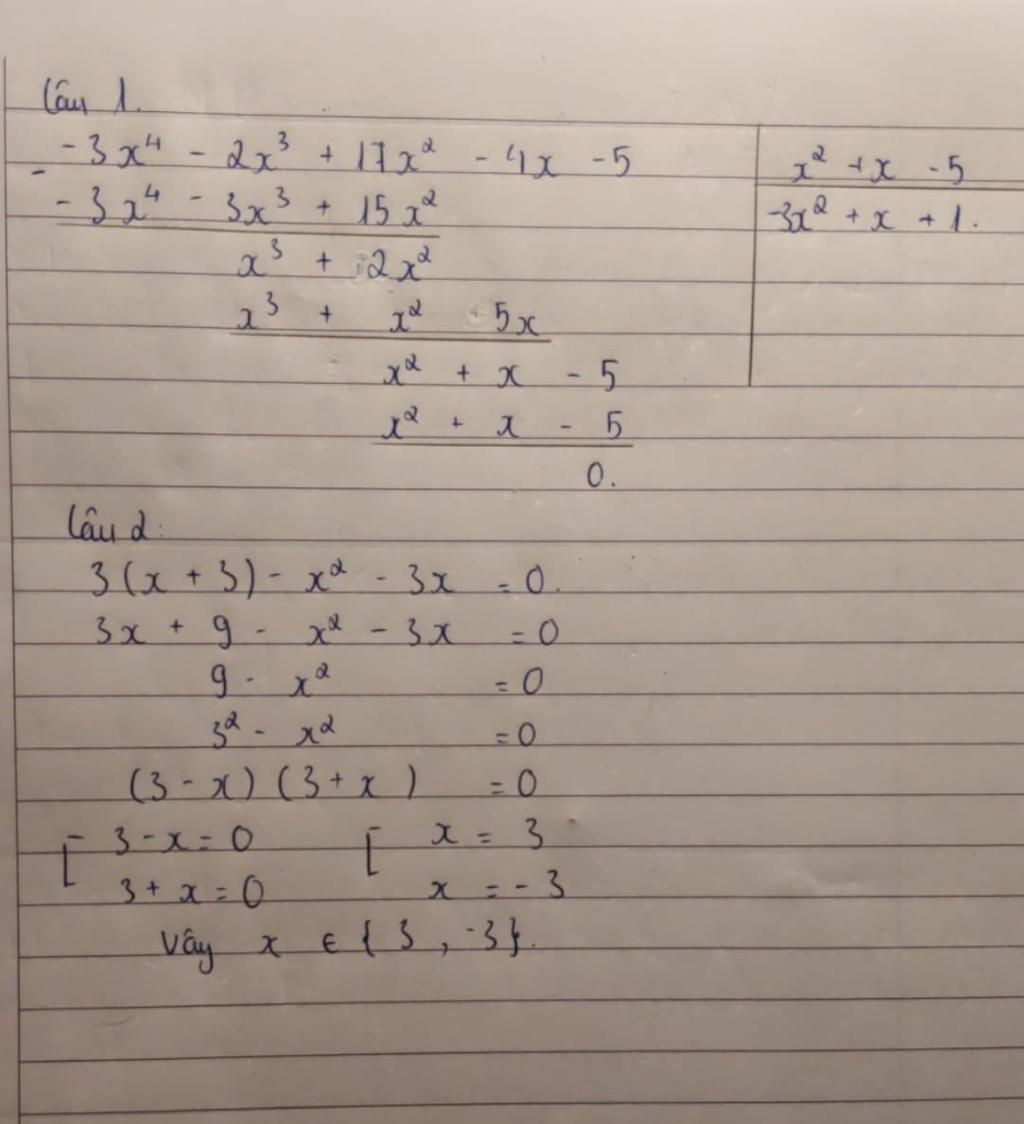 Câu 1.
-3x⁴ - 2x³ + 17x² - 4x - 5 | x² + x - 5
-
-3x⁴ - 3x³ + 15x² | -3x² + x + 1.
x³ + 2x²
x³ + x² 5x
x² + x - 5
x² + x - 5
0.
Câu 2:
3(x + 3) - x² - 3x = 0.
3x + 9 - x² - 3x = 0
9 - x² = 0
3² - x² = 0
(3 - x) (3 + x) = 0
[ 3 - x = 0 [ x = 3
3 + x = 0 x = -3
Vậy x ∈ { 3 , -3}.